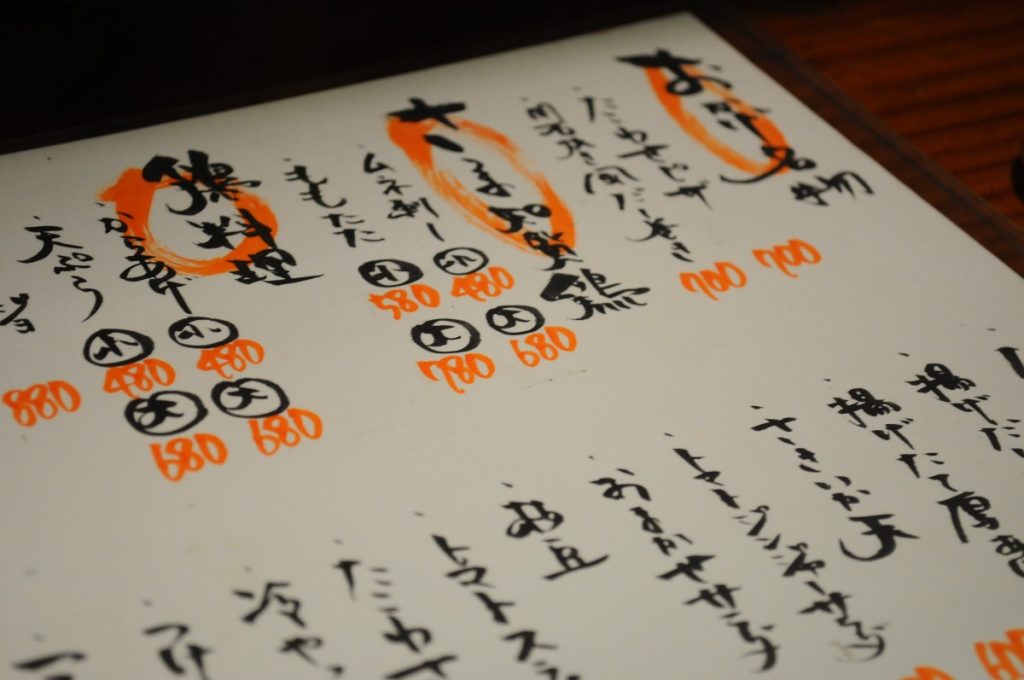 おかげ名物
・たこわさピザ 700
・明石焼き風だし巻き 700
さつま知覧鶏
・ムネ刺し 小 480 大 680
・ももたた 小 580 大 780
鶏料理
・からあげ 小 480 大 680
・天ぷら 小 480 大 680
ジョ 880
・揚げだ
・揚げたて厚揚
・さきいか天
・トマトジンジャーサラダ
・おまかせサラダ
・枝豆
・トマトスラ
・たこわさ
・冷や